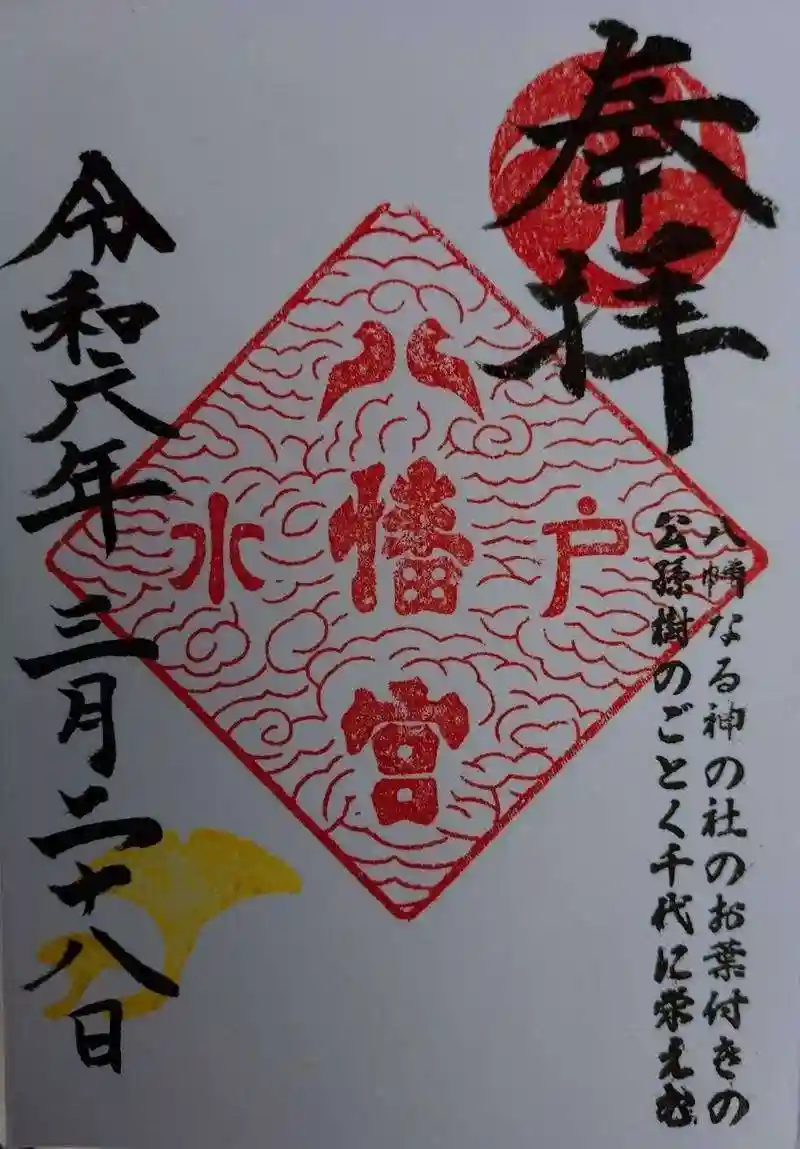 奉拝
八幡なる神の社のお葉付きの
公孫樹のごとく千代に栄えむ
水戸
八幡宮
令和六年三月二十八日